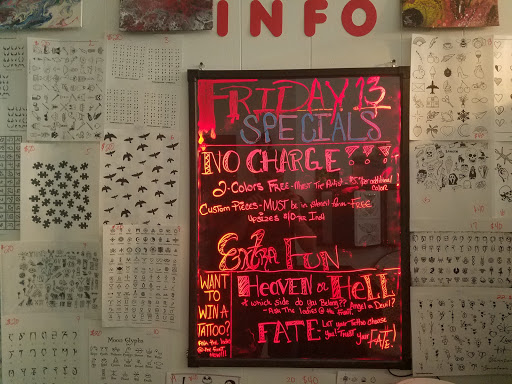 INFO
FRIDAY 13
SPECIALS
NO CHARGE???
2-Colors FREE-Must Tip Artist - $5 Per additional
Color
Custom Pieces-MUST be in stencil form-FREE
Upsizes $10 Per Inch
Extra Fun
WANT
TO
WIN A
TATTOO?
Ask the ladies
@ the front
HEAVEN or HELL
which side do you Belong?? Angel or Devil?
-Ask The Ladies @ the front!
FATE Let your Tattoo choose
you! Trust your FATE!
Glyphs